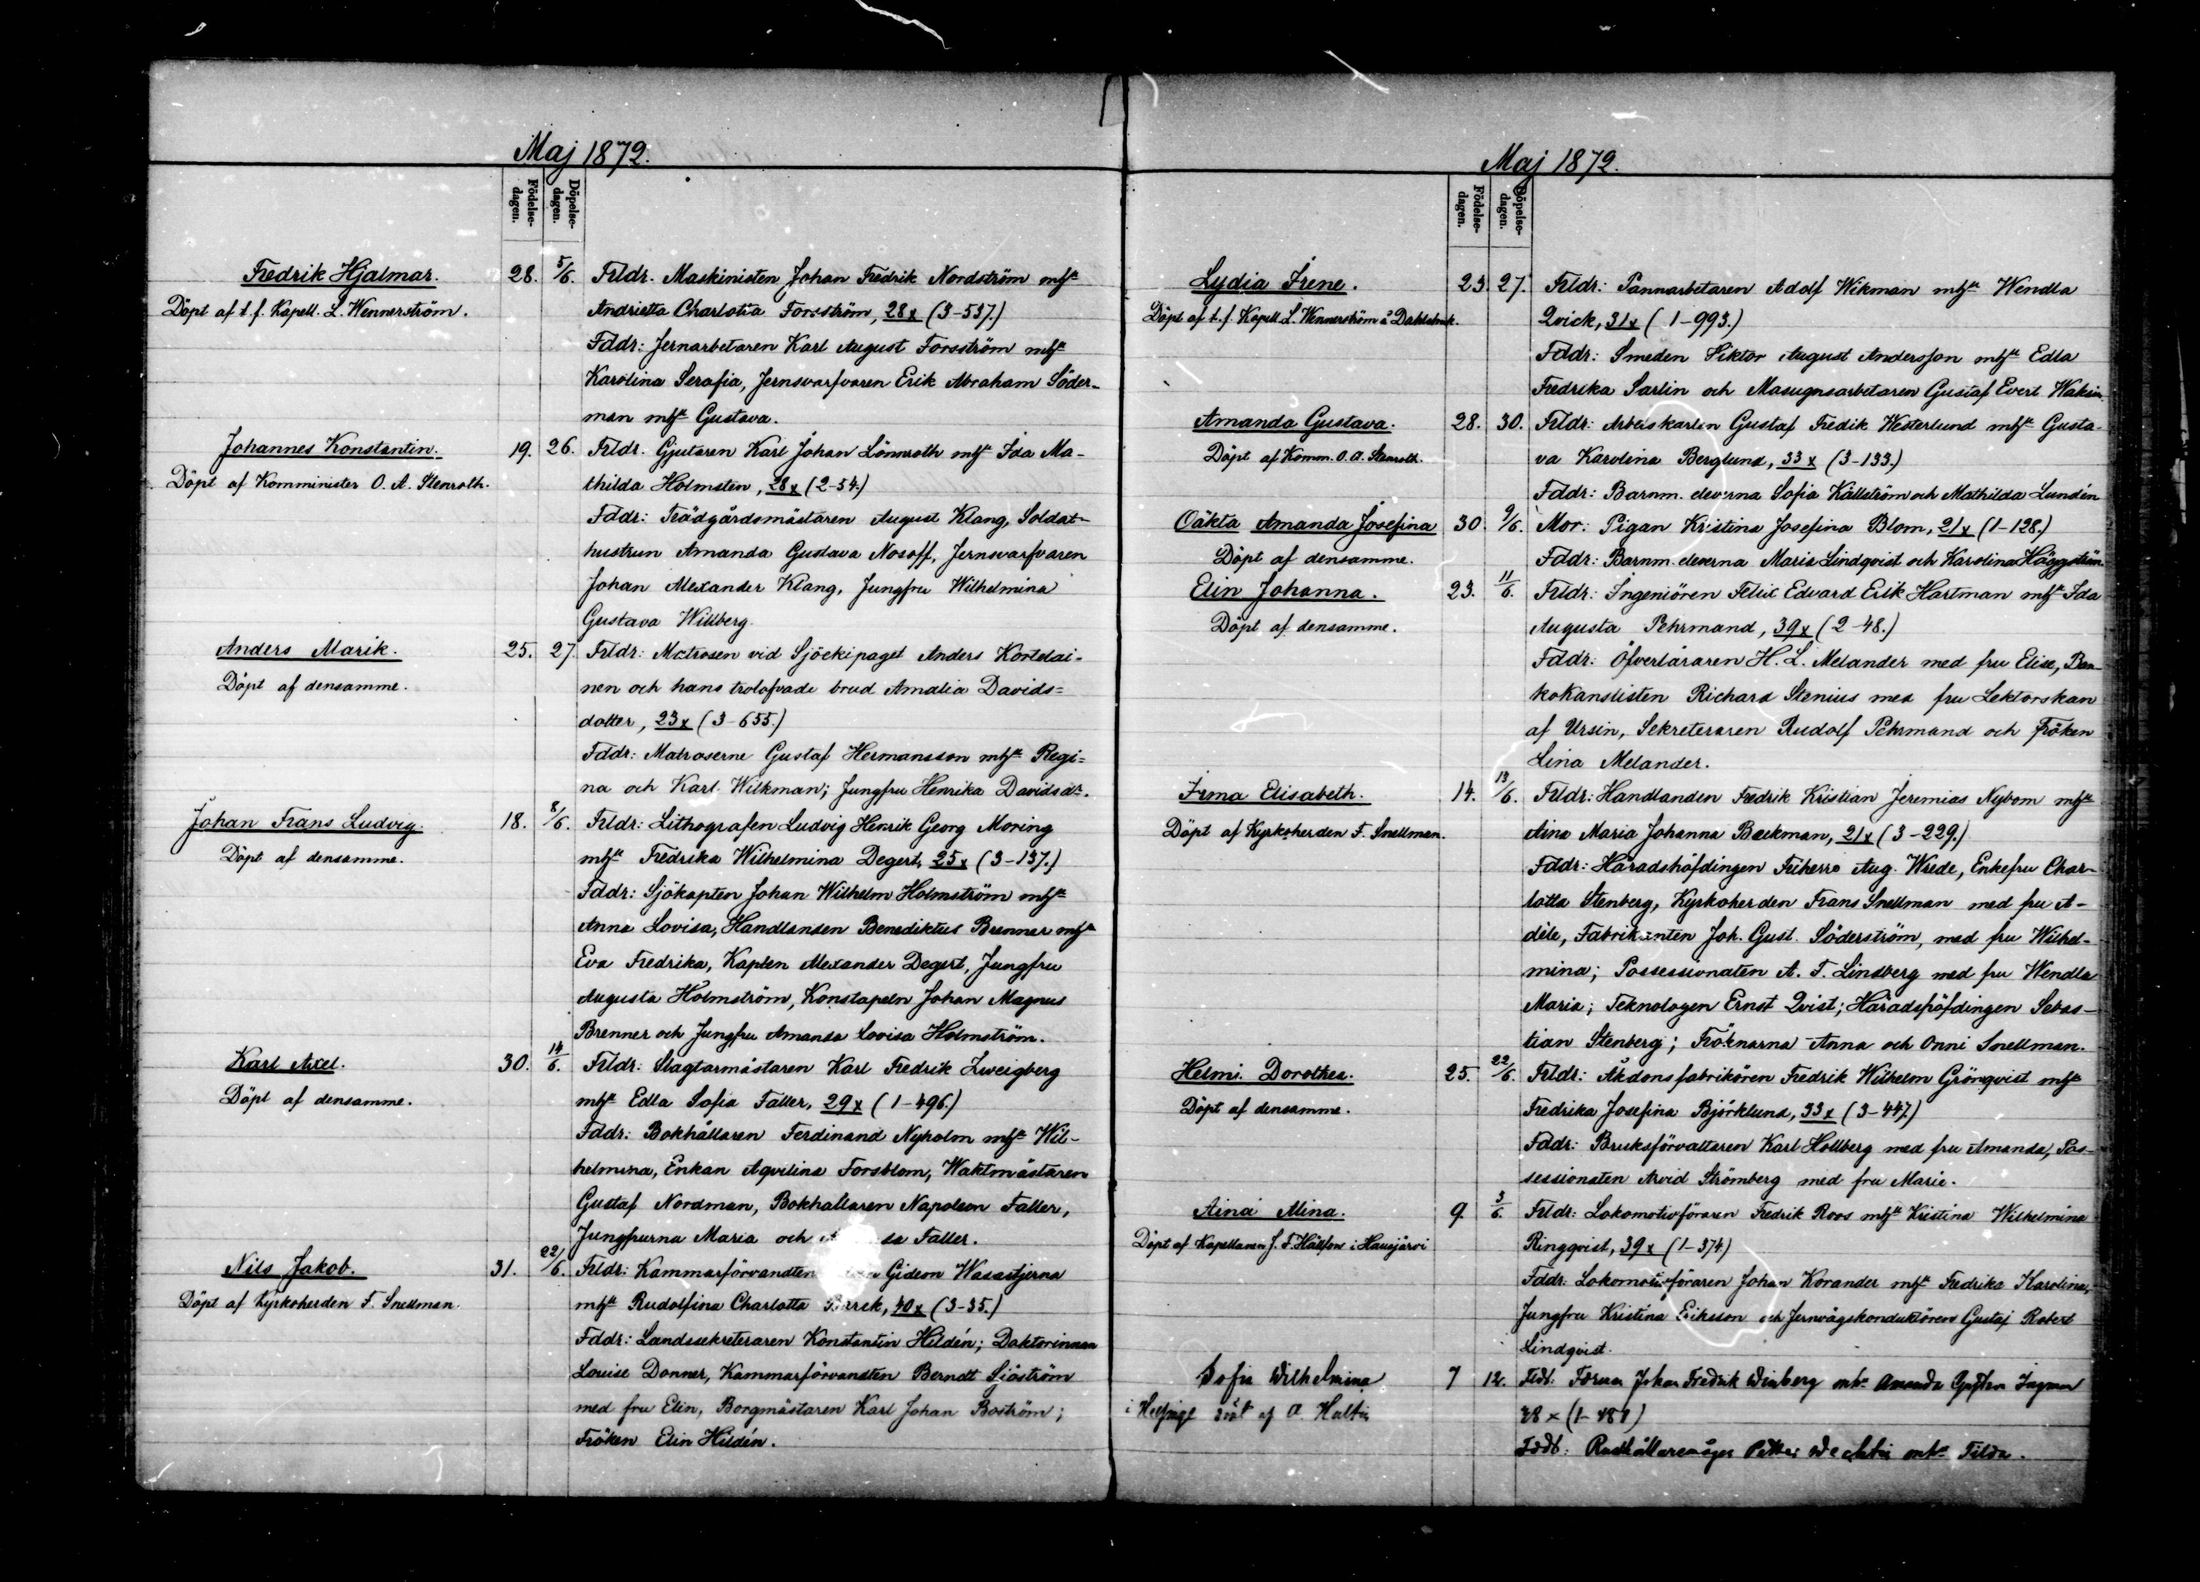 Maj 1872.
Födelse-
dagen.
Döpelse-
dagen.
Fredrik Hjalmar. 28. 5/6. Frldr. Maskinisten Johan Fredrik Nordström mhst
Döpt af t. f. Kapell. L. Wennerström. Andrietta Charlotta Forsström, 28 x (3-537.)
Fddr: Jernarbetaren Karl August Forsström mhst
Karolina Serafia, Jernsvarfvaren Erik Abraham Söder-
man mhst Gustava.
Johannes Konstantin. 19. 26. Frldr. Gjutaren Karl Johan Lönnroth mhst Ida Ma-
Döpt af Komminister O. A. Stenroth. thilda Holmsten, 28 x (2-54.)
Fddr: Trädgårdsmästaren August Klang, Soldat-
hustrun Amanda Gustava Nosoff, Jernsvarfvaren
Johan Alexander Klang, Jungfru Wilhelmina
Gustava Willberg.
Anders Marik. 25. 27. Frldr: Matrosen vid Sjöekipaget Anders Kortelai-
Döpt af densamme. nen och hans trolofvade brud Amalia Davids=
dotter, 23 x (3-655.)
Fddr: Matroserne Gustaf Hermansson mhst Regi=
na och Karl Wilkman; Jungfru Henrika Davidsdr.
Johan Frans Ludvig. 18. 8/6. Frldr: Lithografen Ludvig Henrik Georg Moring
Döpt af densamme. mhst Fredrika Wilhelmina Degert, 25 x (3-137.)
Fddr: Sjökapten Johan Wilhelm Holmström mhst
Anna Lovisa, Handlanden Benediktus Brenner mhst
Eva Fredrika, Kapten Alexander Degert, Jungfru
Augusta Holmström, Konstapeln Johan Magnus
Brenner och Jungfru Amanda Lovisa Holmström.
Karl Axel. 30. 14/6. Frldr: Slagtarmästaren Karl Fredrik Zweigberg
Döpt af densamme. mhst Edla Sofia Faller, 29 x (1-496.)
Fddr: Bokhållaren Ferdinand Nyholm mhst Wil-
helmina, Enkan Aqvilina Forsblom, Waktmästaren
Gustaf Nordman, Bokhållaren Napoleon Faller,
Jungfrurna Maria och Faller.
Nils Jakob. 31. 22/6. Frldr: Kammarförvandten Gideon Wasastjerna
Döpt af Kyrkoherden F. Snellman. mhst Rudolfina Charlotta Burck, 40 x (3-35.)
Fddr: Landssekreteraren Konstantin Hildén; Doktorinnan
Louise Donner, Kammarförvandten Berndt Sjöström
med fru Elin, Borgmästaren Karl Johan Boström;
Fröken Elin Hildén.
Maj 1872.
Födelse-
dagen.
Döpelse-
dagen.
Lydia Irene. 23. 27. Frldr: Pannarbetaren Adolf Wikman mhst Wendla
Döpt af t. f. Kapell. L. Wennerström å Dahlsbruk. Qvick, 31 x (1-993.)
Fddr: Smeden Viktor August Andersson mhst Edla
Fredrika Sarlin och Masugnsarbetaren Gustaf Evert
Amanda Gustava. 28. 30. Frldr: Arbetskarlen Gustaf Fredik Westerlund mhst Gusta-
Döpt af Komm. O. A. Stenroth. va Karolina Berglund, 33 x (3-133.)
Fddr: Barnm. eleverna Sofia Källström och Mathilda Lundén
Oäkta Amanda Josefina 30. 9/6. Mor: Pigan Kristina Josefina Blom, 21 x (1-128.)
Döpt af densamme. Fddr: Barnm. eleverna Maria Lindqvist och Karolina Häggström
Elin Johanna. 23. 11/6. Frldr: Ingeniören Felix Edvard Erik Hartman mhst Ida
Döpt af densamme. Augusta Pehrmand, 39 x (2-48.)
Fddr: Öfverläraren H. L. Melander med fru Elise, Ban-
kokanslisten Richard Stenius med fru Lektorskan
af Ursin, Sekreteraren Rudolf Pehrmand och Fröken
Lina Melander.
Irma Elisabeth. 14. 13/6. Frldr: Handlanden Fredrik Kristian Jeremias Nybom mhst
Döpt af Kyrkoherden F. Snellman. Aina Maria Johanna Backman, 21 x (3-229.)
Fddr: Häradshöfdingen Friherre Aug. Wrede, Enkefru Char-
lotta Stenberg, Kyrkoherden Frans Snellman med fru A-
dèle, Fabrikanten Joh. Gust. Söderström, med fru Wilhel-
mina; Possessionaten A. T. Lindberg med fru Wendla
Maria; Teknologen Ernst Qvist; Häradshöfdingen Sebas-
tian Stenberg; Fröknarna Anna och Onni Snellman.
Helmi Dorothea. 25. 22/6. Frldr: Åkdonsfabrikören Fredrik Wilhelm Grönqvist mhst
Döpt af densamme. Fredrika Josefina Björklund, 33 x (3-447.)
Fddr: Bruksförvaltaren Karl Hollberg med fru Amanda, Pos-
sessionaten Arvid Strömberg med fru Marie.
Aina Mina. 9. 3/6. Frldr: Lokomotivföraren Fredrik Roos mhst Kristina Wilhelmina
Döpt af Kapellanen J. F. i Hausjärvi Ringqvist, 39 x (1-374)
Fddr: Lokomotivföraren Johan Korander mhst Fredrika Karolina,
Jungfru Kristina Eriksson och Jernvägskonduktören Gustaf Robert
Lindqvist.
Sofia Wilhelmina 7 12. Johan Fredrik Winberg mhst Amanda
i Helsinge döpt af A. Hultin 38 x (1-481)
Fddr: Petter mhst Tilda.